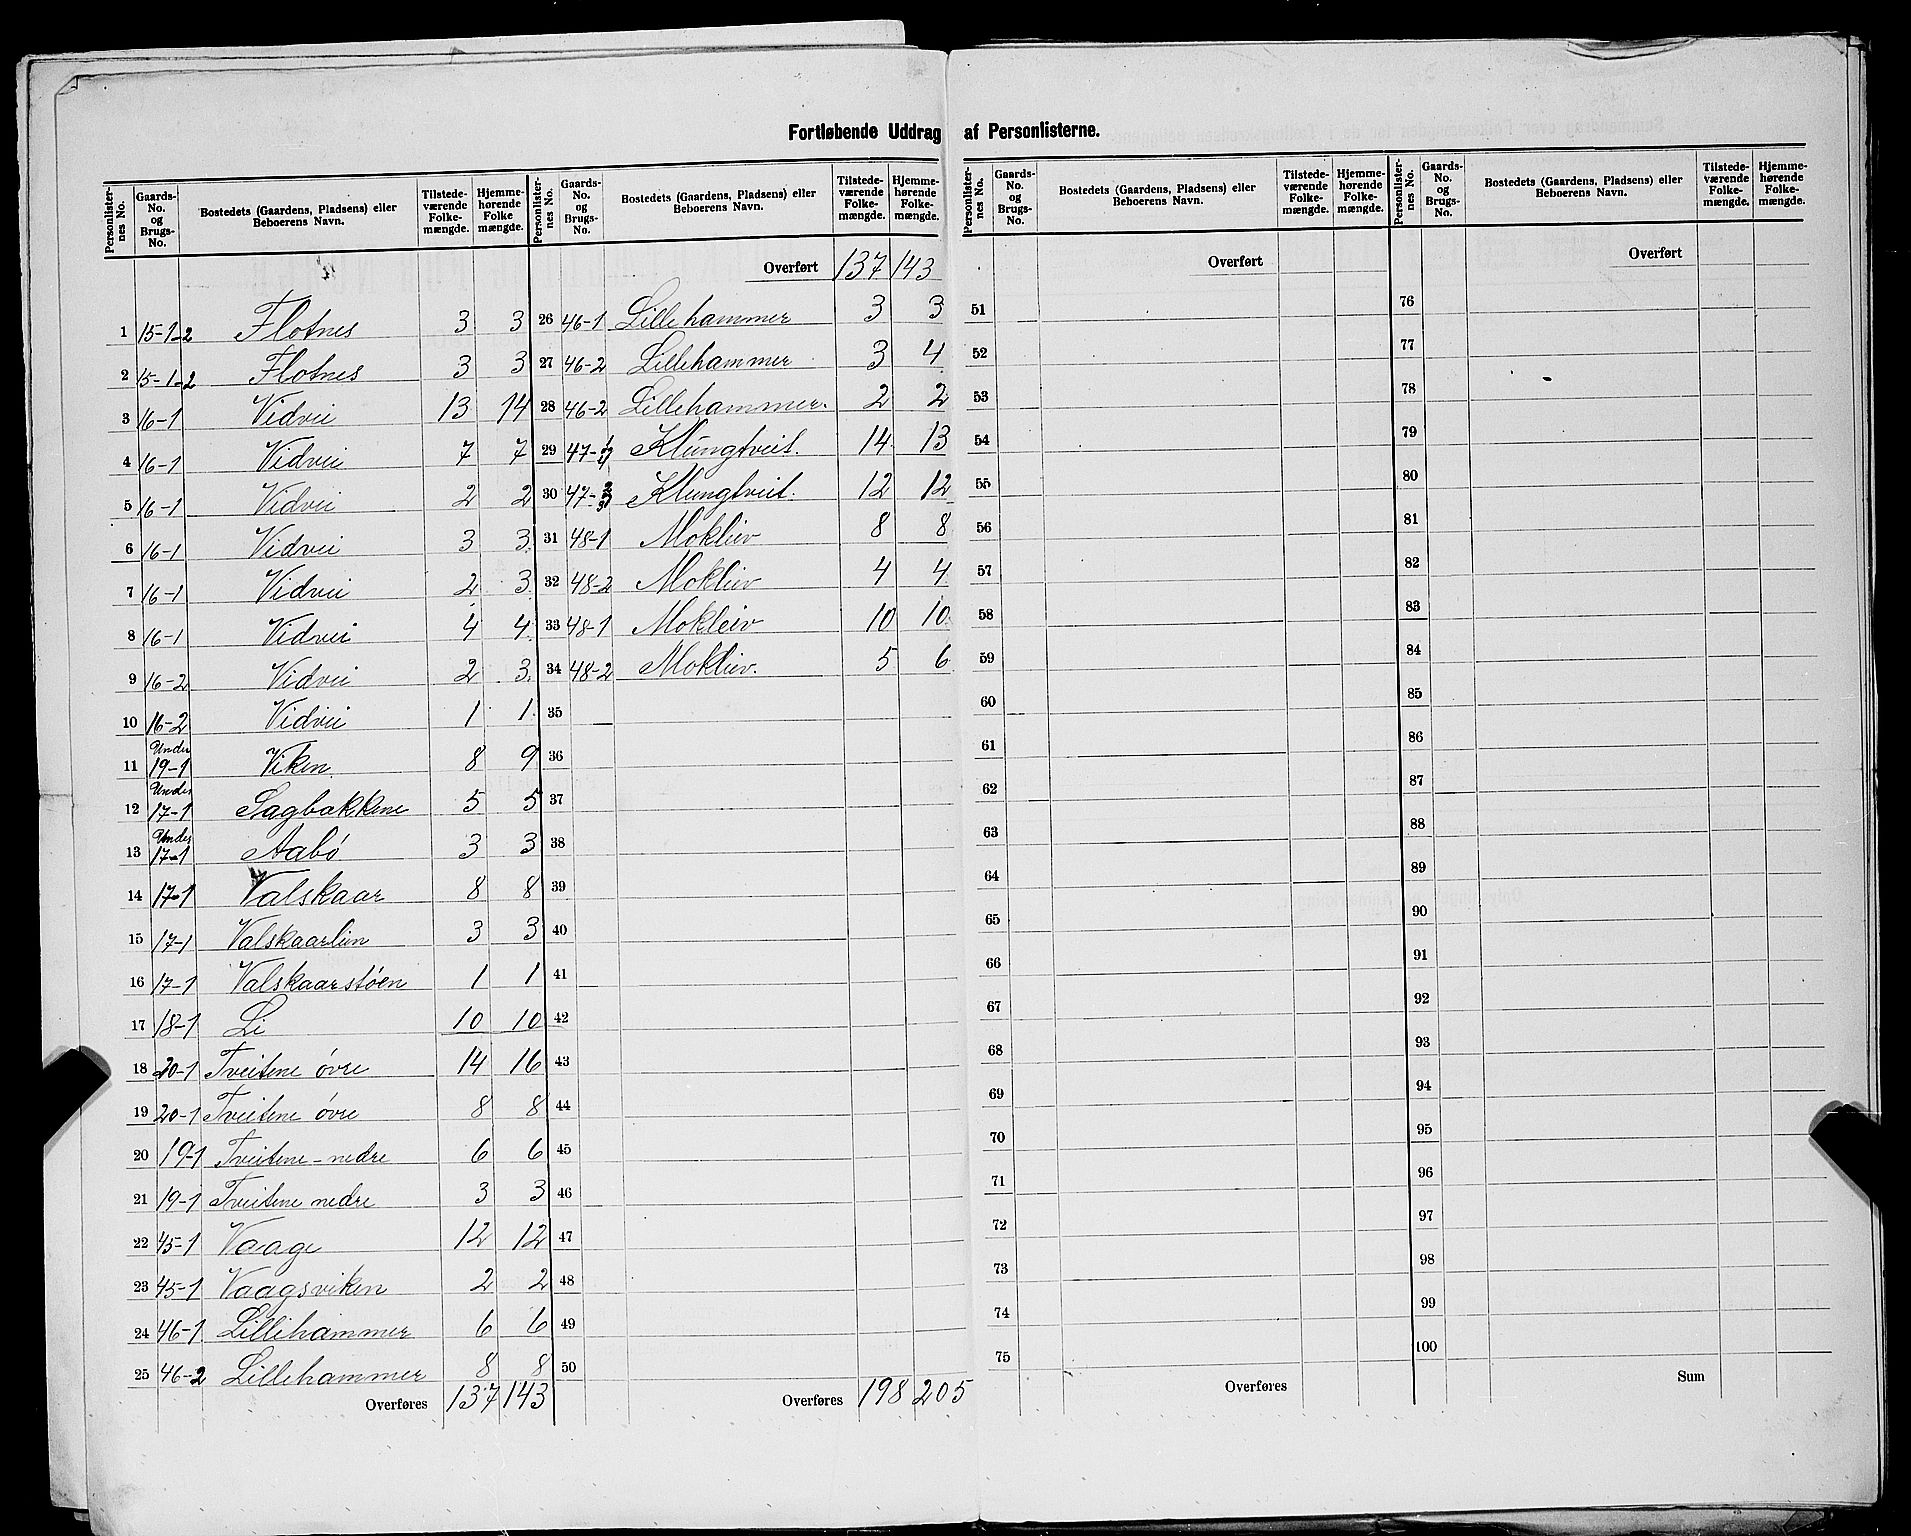 Fortløbende Uddrag af Personlisterne.
Personlister-nes No. | Gaards-No. og Brugs-No. | Bostedets (Gaardens, Pladsens) eller Beboerens Navn. | Tilstede-værende Folke-mængde. | Hjemme-hørende Folke mængde.
1 15-1-2 Flotnes 3 3
2 15-1-2 Flotnes 3 3
3 16-1 Vidvei 13 14
4 16-1 Vidvei 7 7
5 16-1 Vidvei 2 2
6 16-1 Vidvei 3 3
7 16-1 Vidvei 2 3
8 16-1 Vidvei 4 4
9 16-2 Vidvei 2 3
10 16-2 Vidvei 1 1
11 Under 19-1 Viken 8 9
12 Under 17-1 Sagbakkene 5 5
13 Under 17-1 Aabö 3 3
14 17-1 Valskaar 8 8
15 17-1 Valskaarlien 3 3
16 17-1 Valskaarstöen 1 1
17 18-1 Li 10 10
18 20-1 Tveitene övre 14 16
19 20-1 Tveitene övre 8 8
20 19-1 Tveitene-nedre 6 6
21 19-1 Tveitene nedre 3 3
22 45-1 Vaage 12 12
23 45-1 Vaagsviken 2 2
24 46-1 Lillehammer 6 6
25 46-2 Lillehammer 8 8
Overføres 137 143
Personlister-nes No. | Gaards-No. og Brugs-No. | Bostedets (Gaardens, Pladsens) eller Beboerens Navn. | Tilstede-værende Folke-mængde. | Hjemme-hørende Folke-mængde.
Overført 137 143
26 46-1 Lillehammer 3 3
27 46-2 Lillehammer 3 4
28 46-2 Lillehammer. 2 2
29 47- Klungtveit. 14 13
30 47- Klungtveit. 12 12
31 48-1 Mokleiv 8 8
32 48-2 Mokleiv 4 4
33 48-1 Mokleiv 10 10
34 48-2 Mokleiv. 5 6
35
36
37
38
39
40
41
42
43
44
45
46
47
48
49
50
Overføres 198 205
Personlister-nes No. | Gaards-No. og Brugs-No. | Bostedets (Gaardens, Pladsens) eller Beboerens Navn. | Tilstede-værende Folke-mængde. | Hjemme-hørende Folke-mængde.
Overført
51
52
53
54
55
56
57
58
59
60
61
62
63
64
65
66
67
68
69
70
71
72
73
74
75
Overføres
Personlister-nes No. | Gaards-No. og Brugs-No. | Bostedets (Gaardens, Pladsens) eller Beboerens Navn. | Tilstede-værende Folke-mængde. | Hjemme-hørende Folke-mængde.
Overført
76
77
78
79
80
81
82
83
84
85
86
87
88
89
90
91
92
93
94
95
96
97
98
99
100
Sum